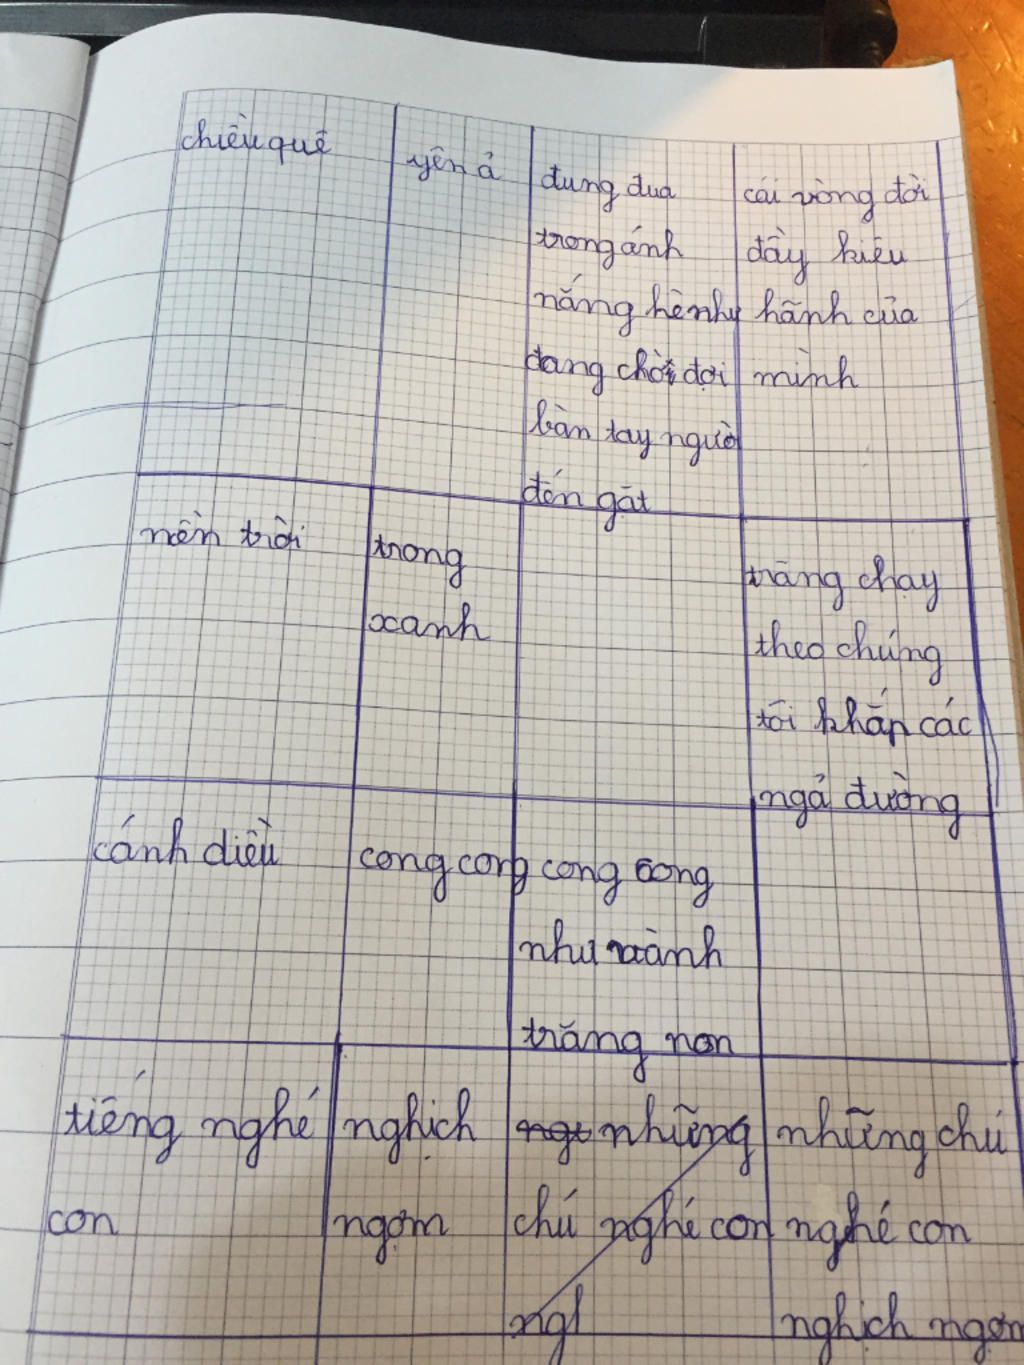 chiều quê
yên ả
đung đưa
trong ánh
nắng hè như
đang chờ đợi
bàn tay người
đến gặt
cái vòng đời
đầy kiêu
hãnh của
mình
nền trời
trong
xanh
trăng chạy
theo chúng
tôi khắp các
ngả đường
cánh diều
cong cong
cong cong
như vành
trăng non
tiếng nghé
con
nghịch
ngợm
những
chú nghé con
ngh
những chú
nghé con
nghịch ngợm